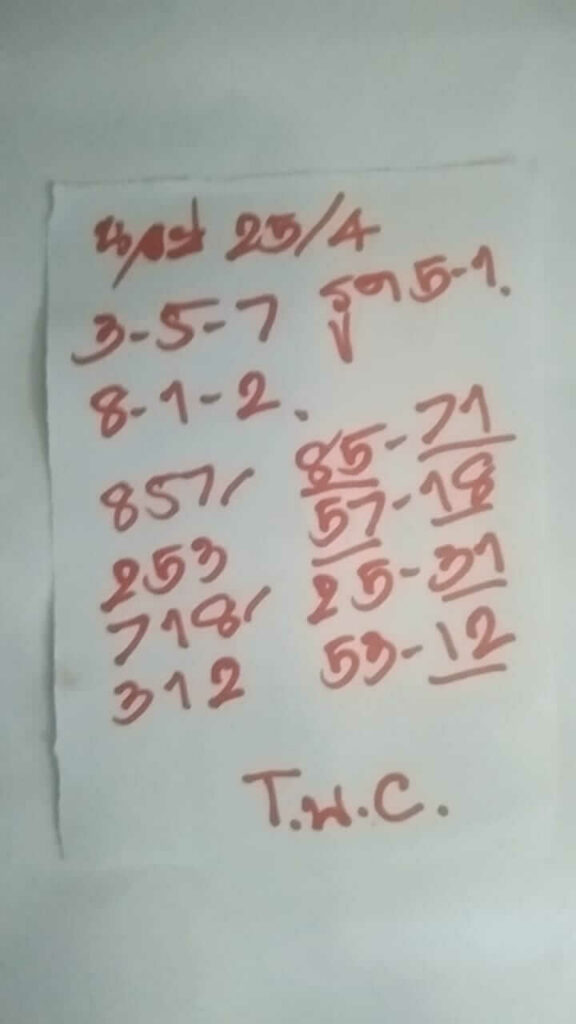 25/4
3-5-7 รูด 5-1.
8-1-2.
857/ 85-71
253 57-18
718/ 25-31
312 53-12
T.น.C.